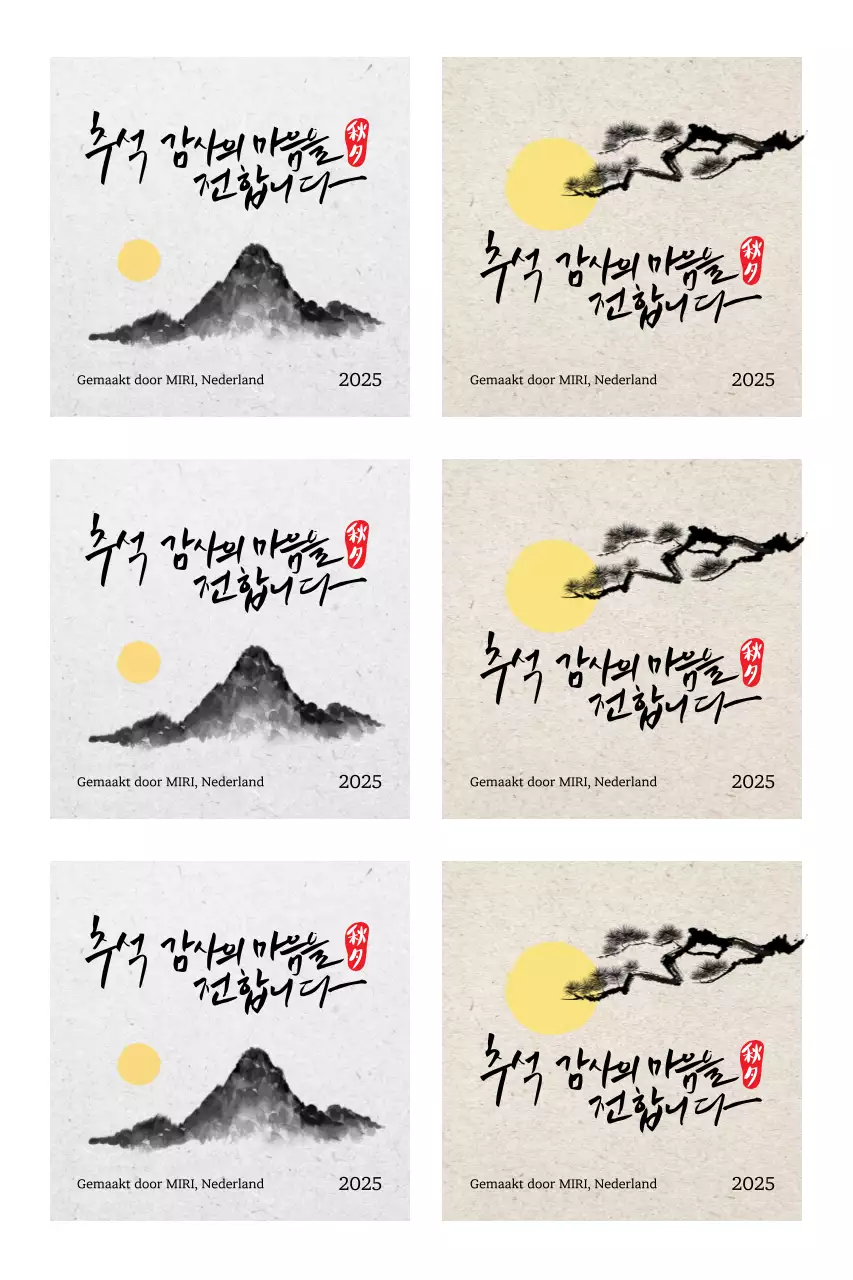 추석 감사의 마음을 秋夕
전합니다
Gemaakt door MIRI, Nederland 2025
추석 감사의 마음을 秋夕
전합니다
Gemaakt door MIRI, Nederland 2025
추석 감사의 마음을 秋夕
전합니다
Gemaakt door MIRI, Nederland 2025
추석 감사의 마음을 秋夕
전합니다
Gemaakt door MIRI, Nederland 2025
추석 감사의 마음을 秋夕
전합니다
Gemaakt door MIRI, Nederland 2025
추석 감사의 마음을 秋夕
전합니다
Gemaakt door MIRI, Nederland 2025